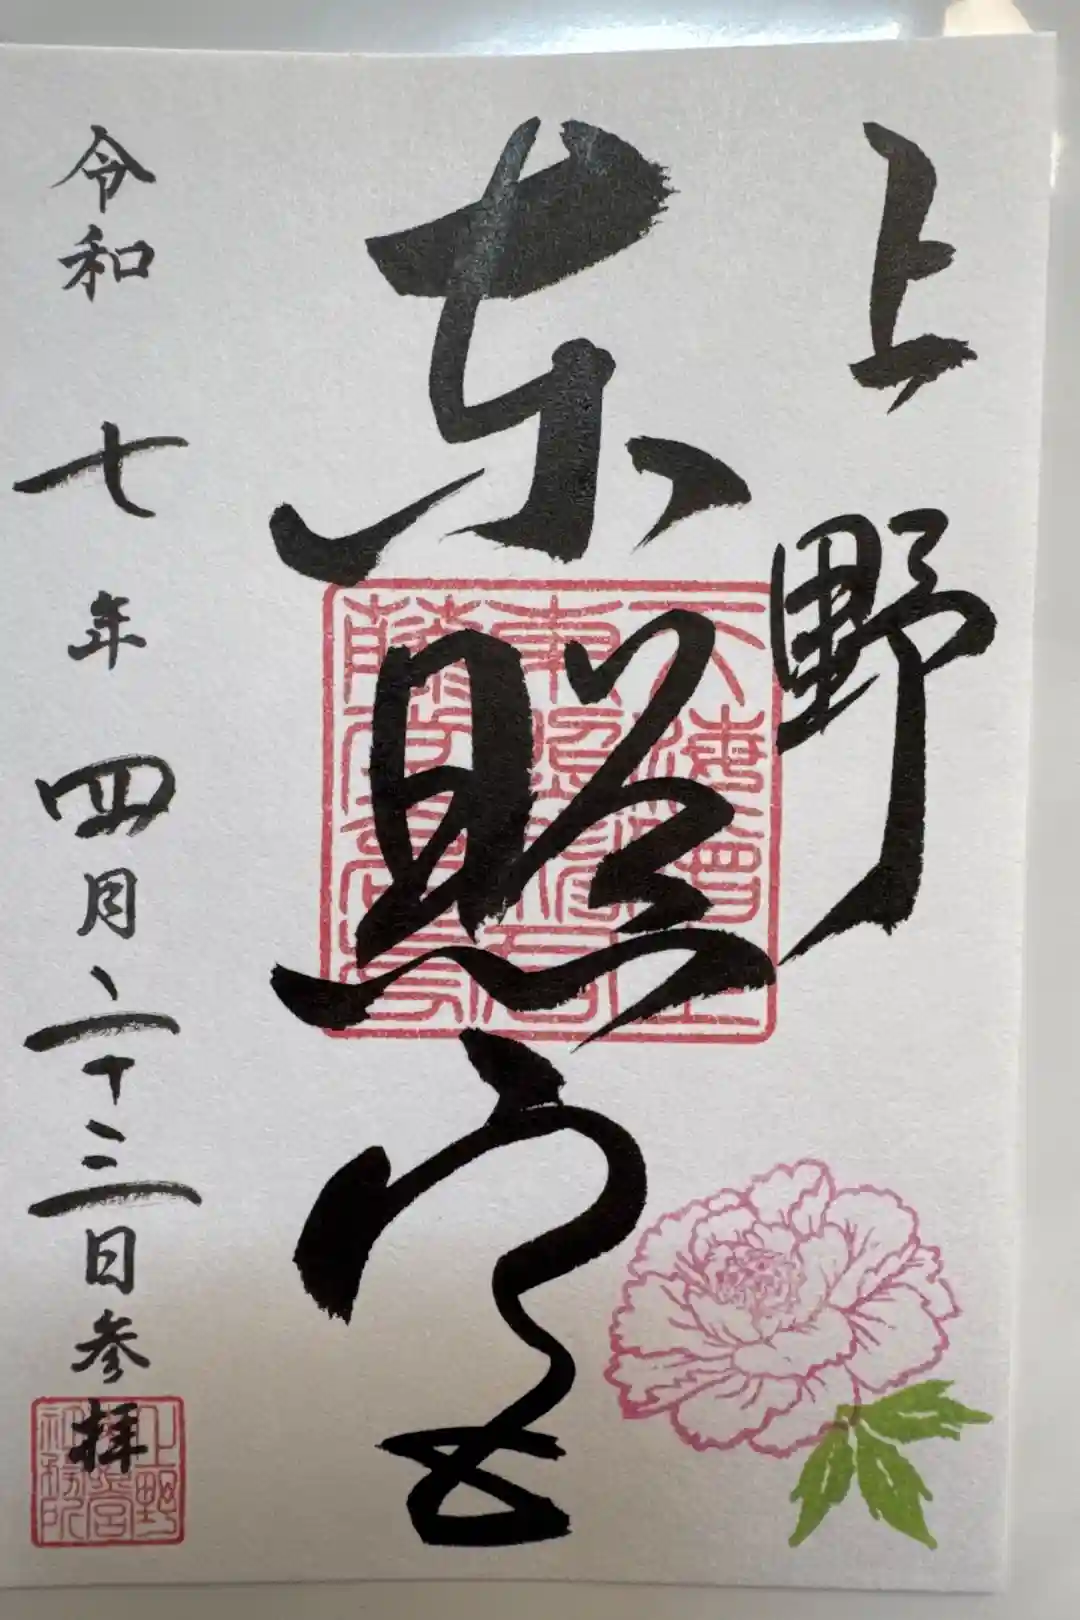 上野
東照宮
令和七年四月二十三日参拝
上野
東照宮
社務所